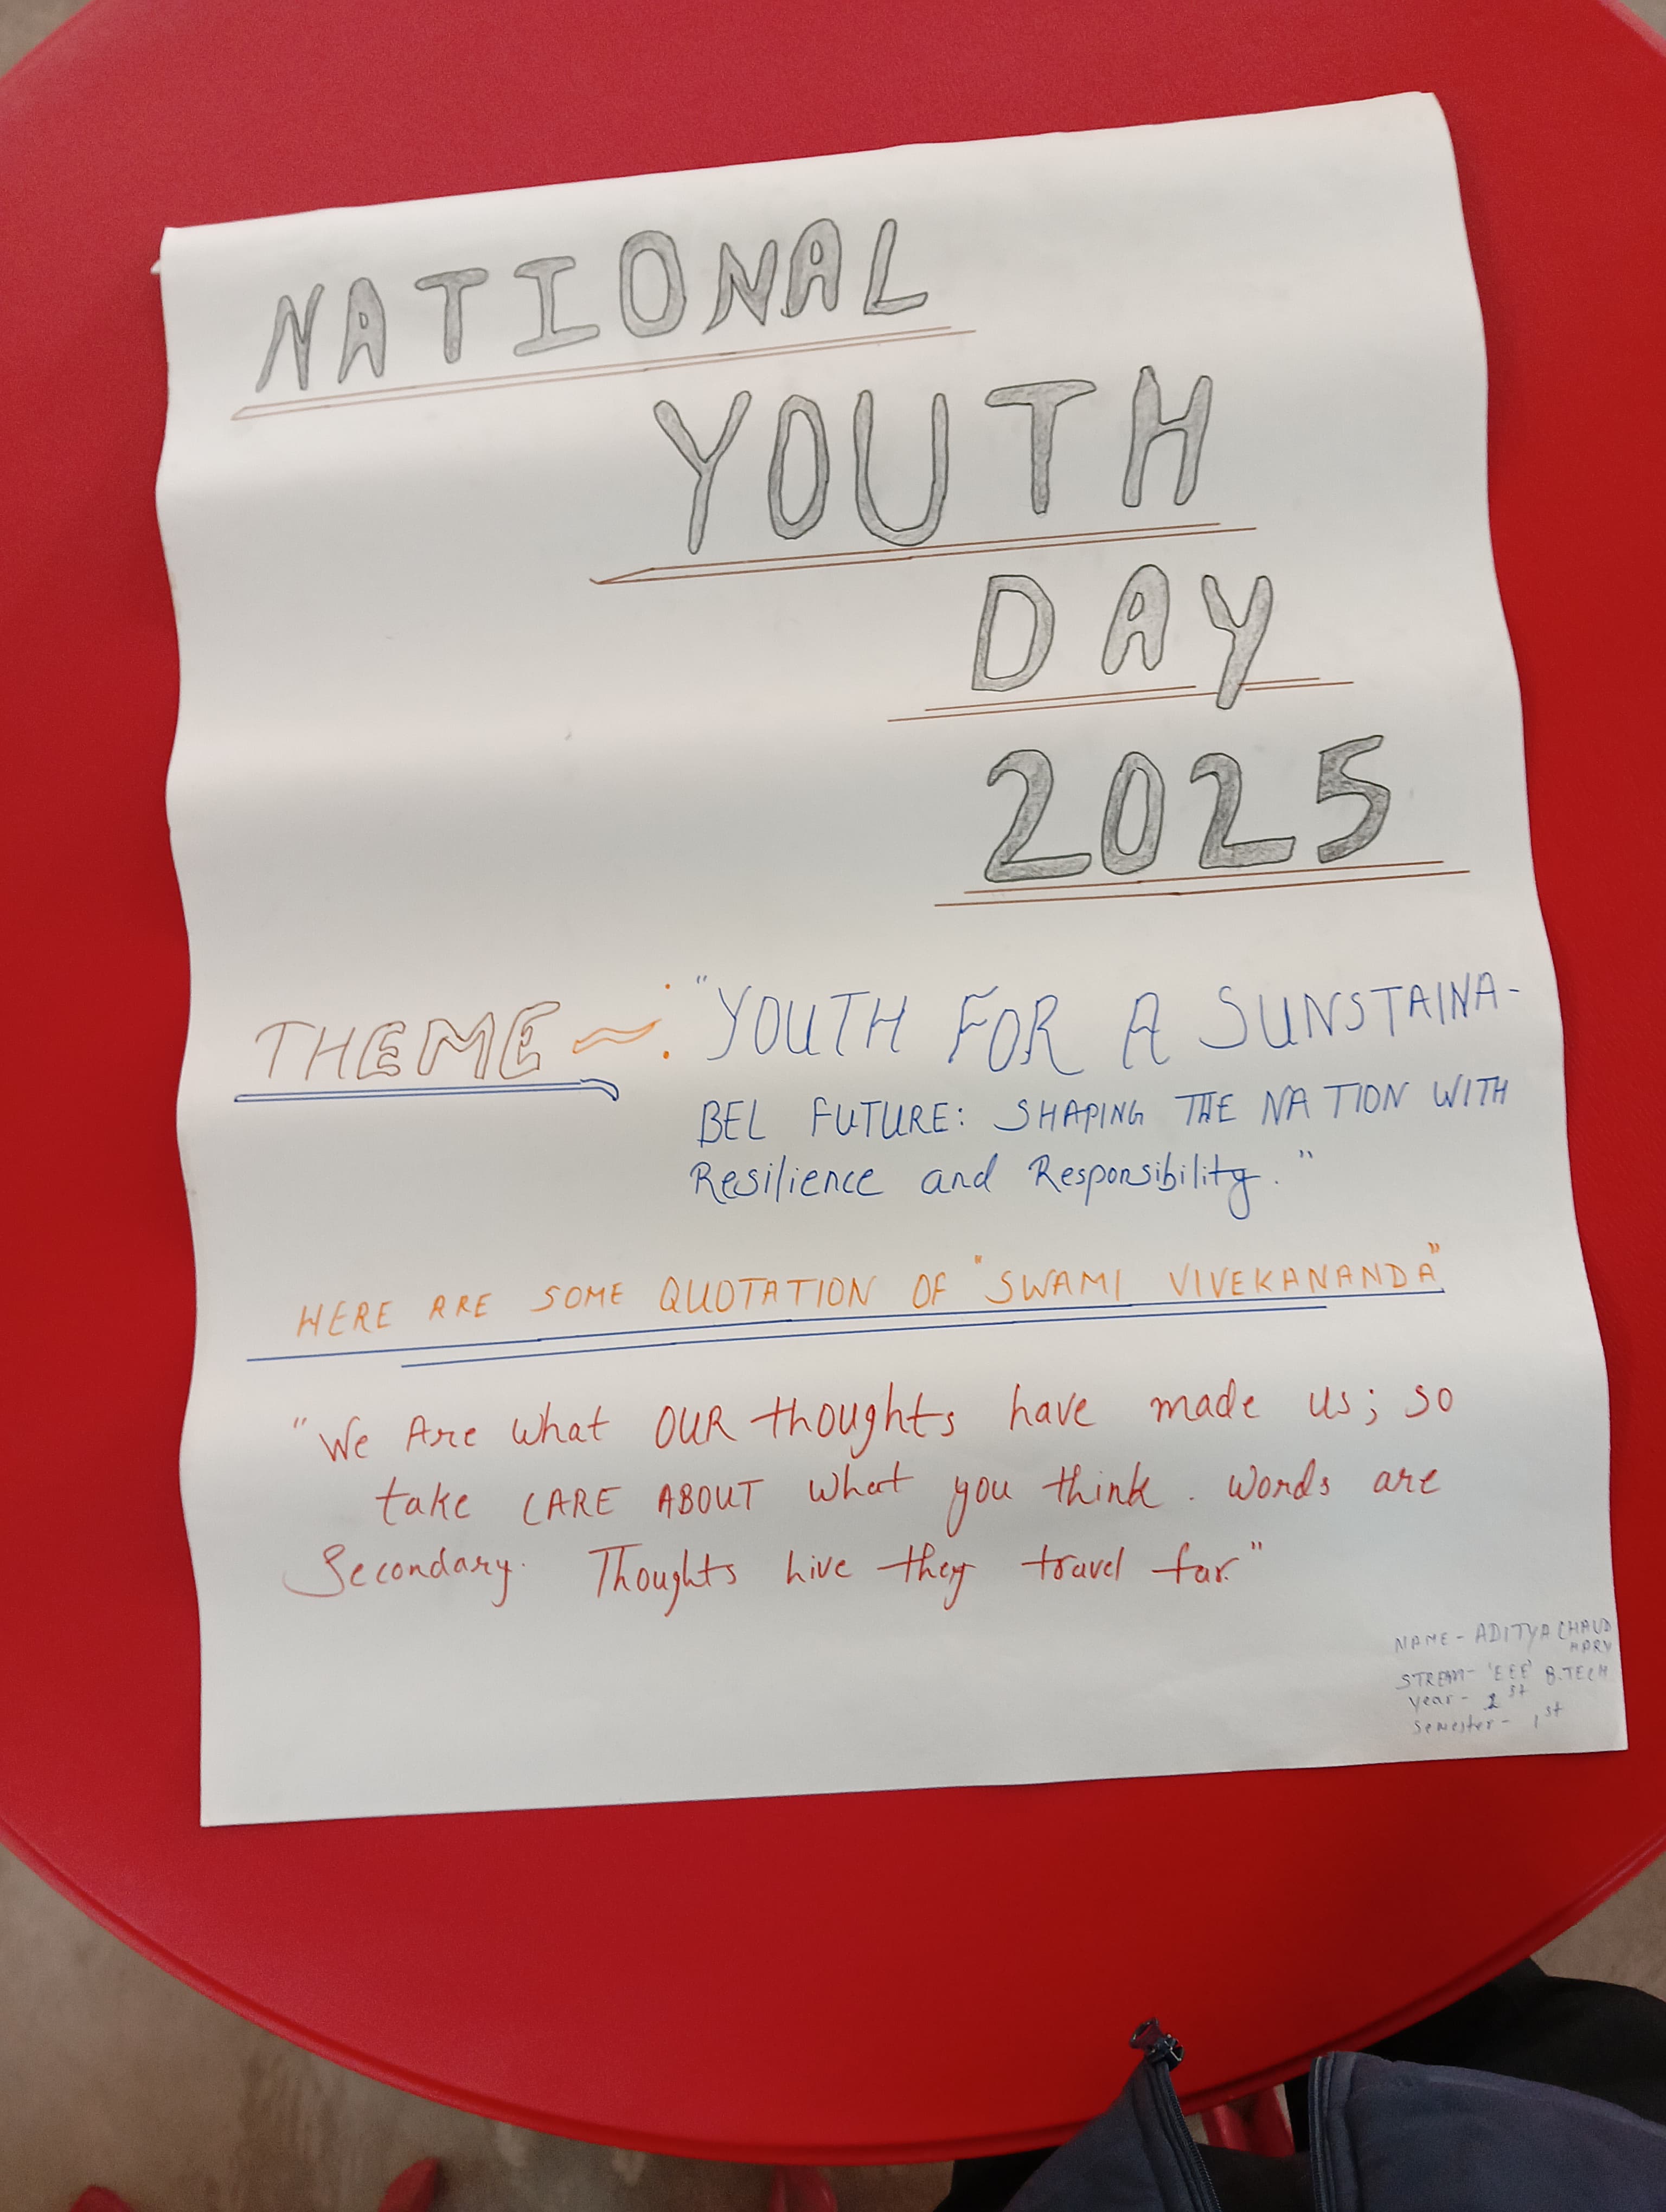 NATIONAL
YOUTH
DAY
2025
THEME ~: "YOUTH FOR A SUNSTAINA-
BEL FUTURE: SHAPING THE NATION WITH
Resilience and Responsibility."
HERE ARE SOME QUOTATION OF "SWAMI VIVEKANANDA"
"We Are what OUR thoughts have made us; so
take CARE ABOUT what you think. Words are
Secondary. Thoughts live they travel far."
NAME - ADITYA CHAUD
HARY
STREAM - 'EEE' B.TECH
Year - 1st
Semester - 1st